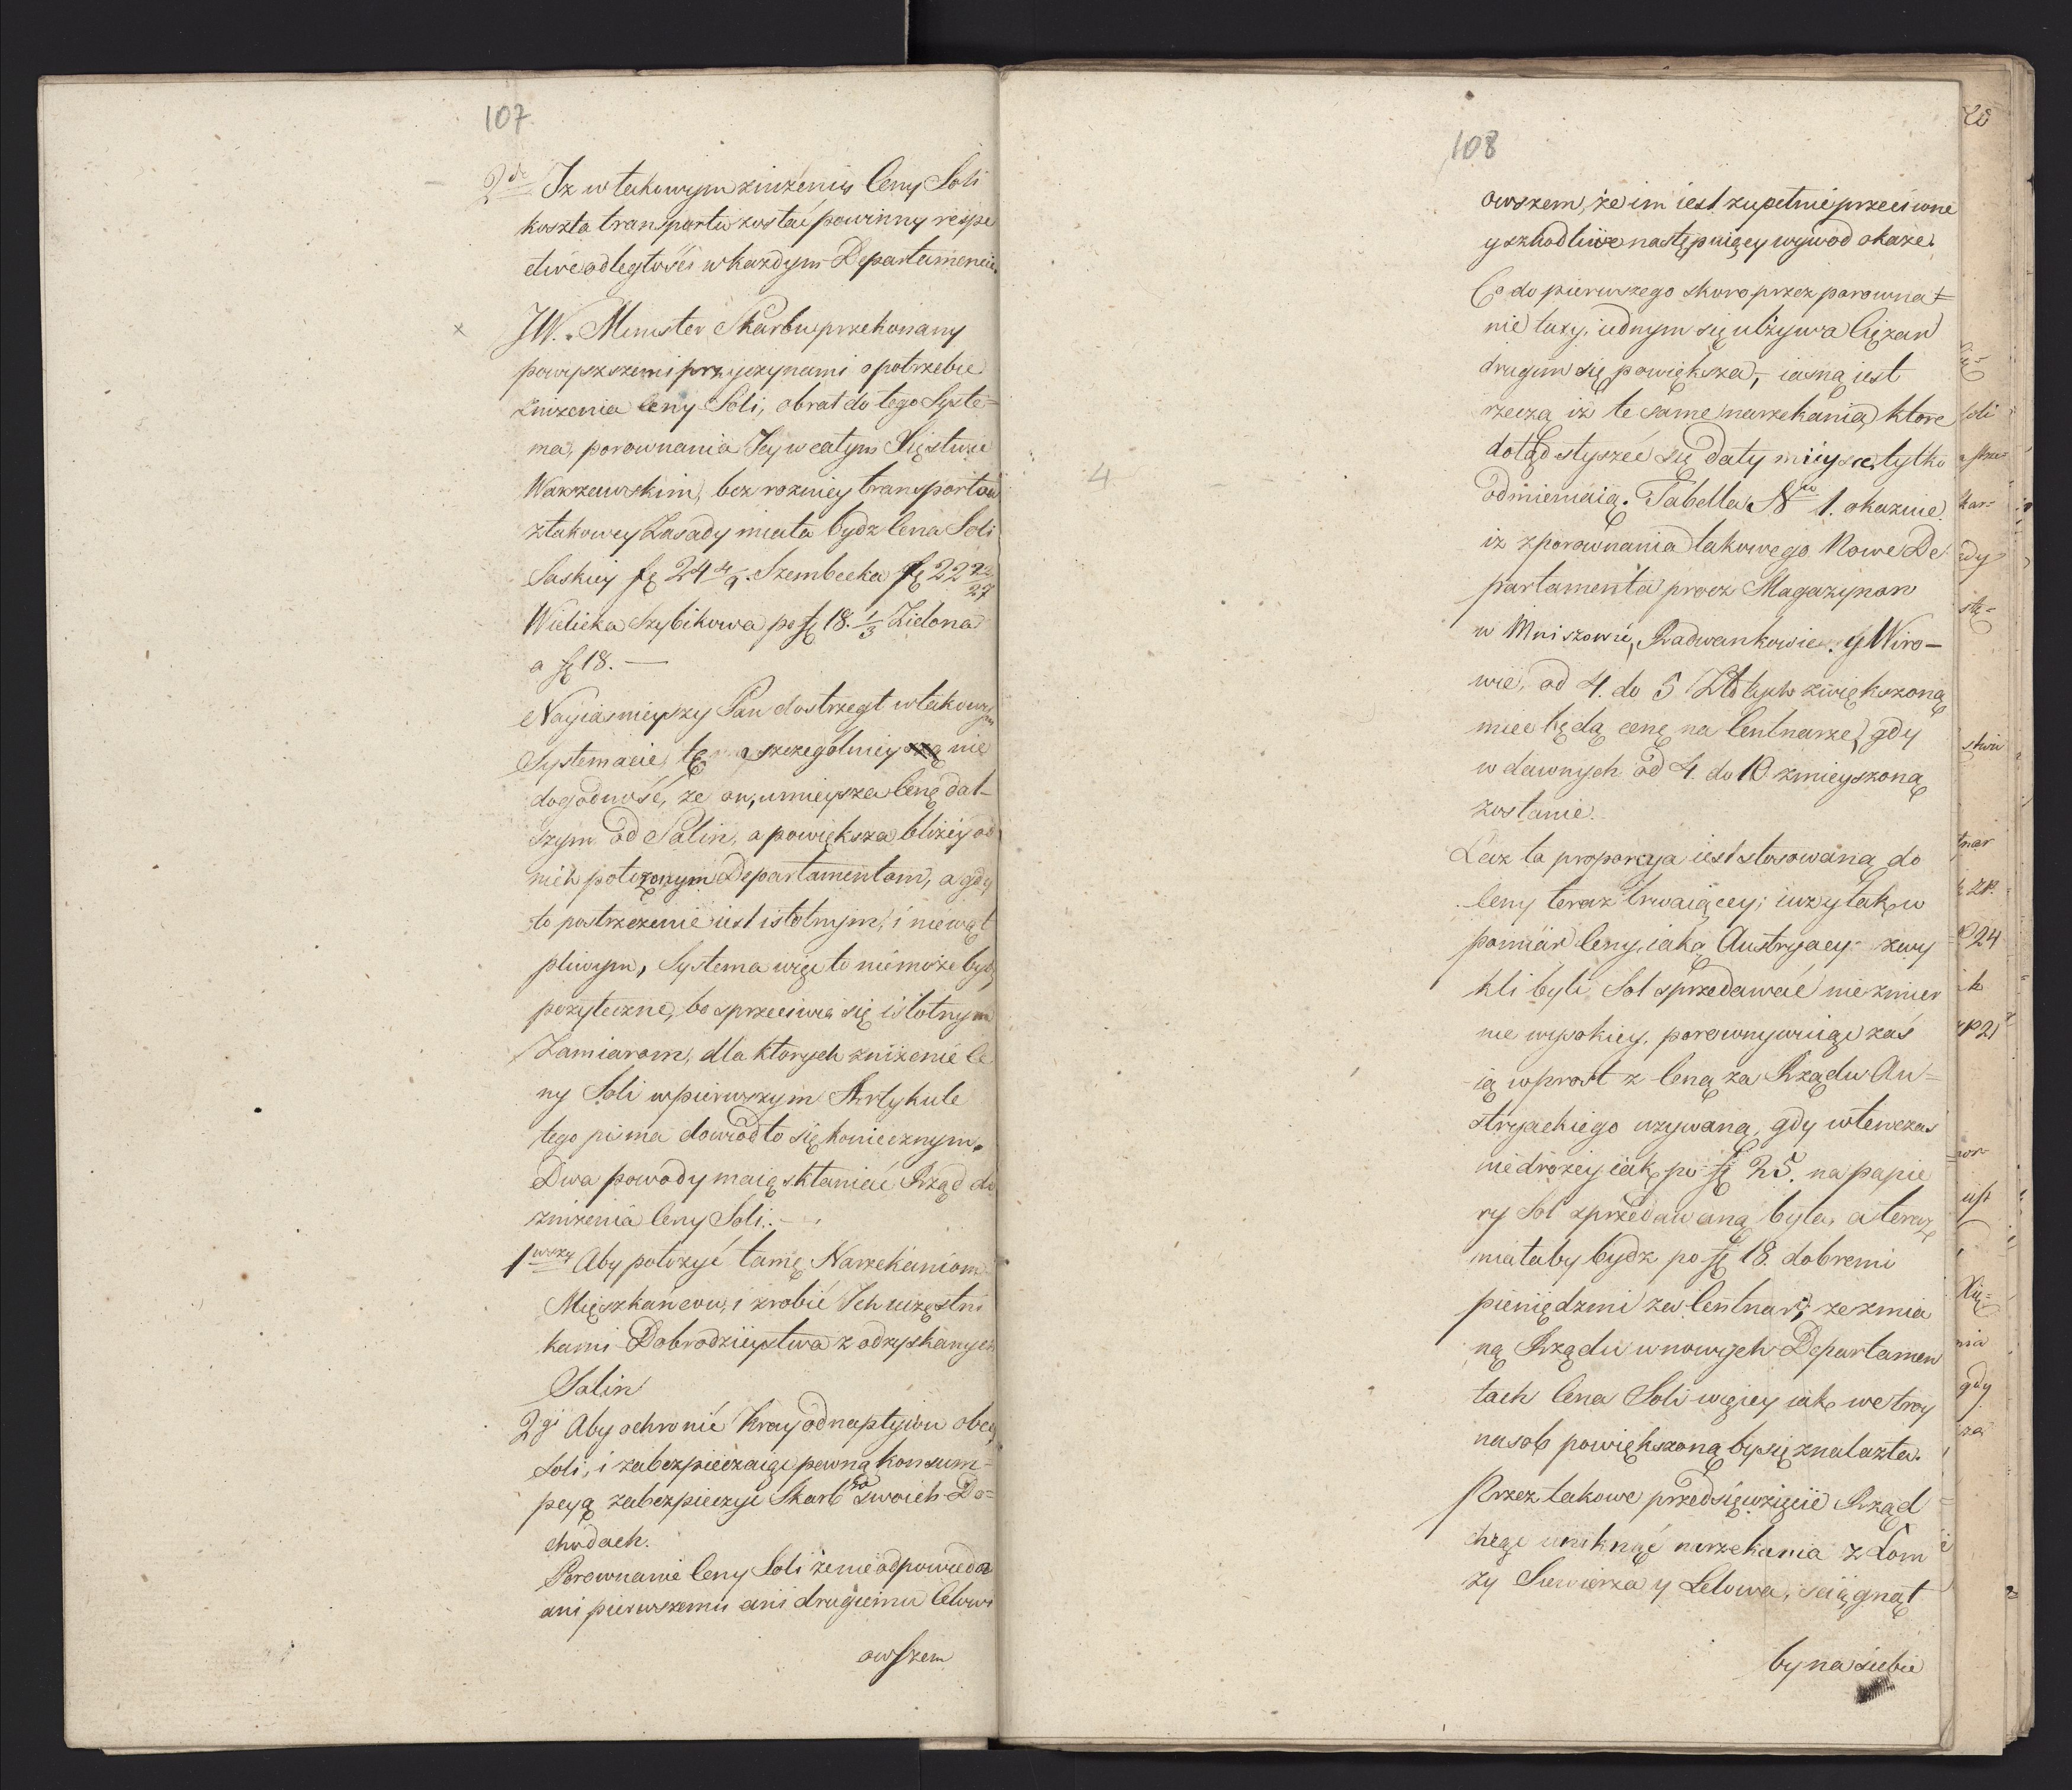 107
2do Iż w takowym zniżeniu Ceny Soli
koszta transportu zostać powinny respe
ctivé odległości w każdym Departamencie.
JW. Minister Skarbu przekonany
powyższemi przyczynami o potrzebie
zniżenia Ceny Soli, obrał do tego Syste=
ma, porownania Jey w całym Xięstwie
Warszawskim, bez rożnicy transportow
z takowey Zasady miała bydz Cena Soli
Saskiey fl 24 4/9. Szembecka fl 22 22/27
Wielicka Szybikowa po fl 18. 1/3 Zielona
a fl 18. —
Nayiaśnieyszy Pan dostrzegł w takowym
Systemacie, tę szczegolniey nie
dogodność, że on, umieysza Cenę dal-
szym od Salin, a powiększa bliżey od
nich położonym Departamentom, a gdy
to postrzeżenie iest istotnym, i niewąt
pliwym, Systema więc to niemoże bydz
pożyteczne, bo sprzeciwia się istotnym
Zamiarom, dla ktorych zniżenie Ce
ny Soli w pierwszym Artykule
tego pisma dowiodło się koniecznym.
Dwa powody maią skłaniać Rząd do
zniżenia Ceny Soli. —
1wszy Aby położyć tamę Narzekaniom
Mięszkańcow, i zrobić Ich uczęstni
kami Dobrodzieystwa z odzyskanych
Salin
2gi Aby ochronić Kray od napływu obcey
Soli, i zabezpieczaiąc pewną konsum-
pcyą zabezpieczyć Skarb w swoich Do=
chodach.
Porownanie Ceny Soli że nieodpowieda
ani pierwszemu ani drugiemu Celowi
owszem
108
owszem, że im iest zupełnie przeciwne
y szkodliwe następuiący wywod okaże.
Co do pierwszego skoro przez porowna=
nie taxy, iednym się ulżywa Ciężar
drugim się powiększa, iasną iest
rzeczą iż te same narzekania, ktore
dotąd słyszeć się dały mieysce tylko
odmieniaią. Tabella Nro 1. okazuie
iż z porownania takowego Nowe De
partamenta procz Magazynow
w Mniszowie, Radwankowie. y Wiro-
wie, od 4. do 5 Złotych zwiększoną
mieć będą cenę na Centnarze, gdy
w dawnych od 4. do 10 zmieyszoną
zostanie.
Lecz ta proporcya iest stosowaną do
Ceny teraz trwaiącey, iuż y tak w
pomiar Ceny, iaką Austryacy zwy
kli byli Sol sprzedawać niezmier
nie wysokiey, porownywuiąc zaś
ią wprost z Ceną za Rządu Au=
stryackiego używaną, gdy wtenczas
niedrożey iak po fl 25. na papie
ry Sol zprzedawaną była, a teraz
miałaby bydz po fl 18. dobremi
pieniędzmi za Centnar, ze zmia
ną Rządu w nowych Departamen
tach Cena Soli więcey iak we troy
nasob powiększoną by się znalazła.
Przez takowe przedsięwzięcie Rząd
chcąc uniknąć narzekania z Łom
ży Siewierza y Lelowa, sciągnął
by na siebie
4